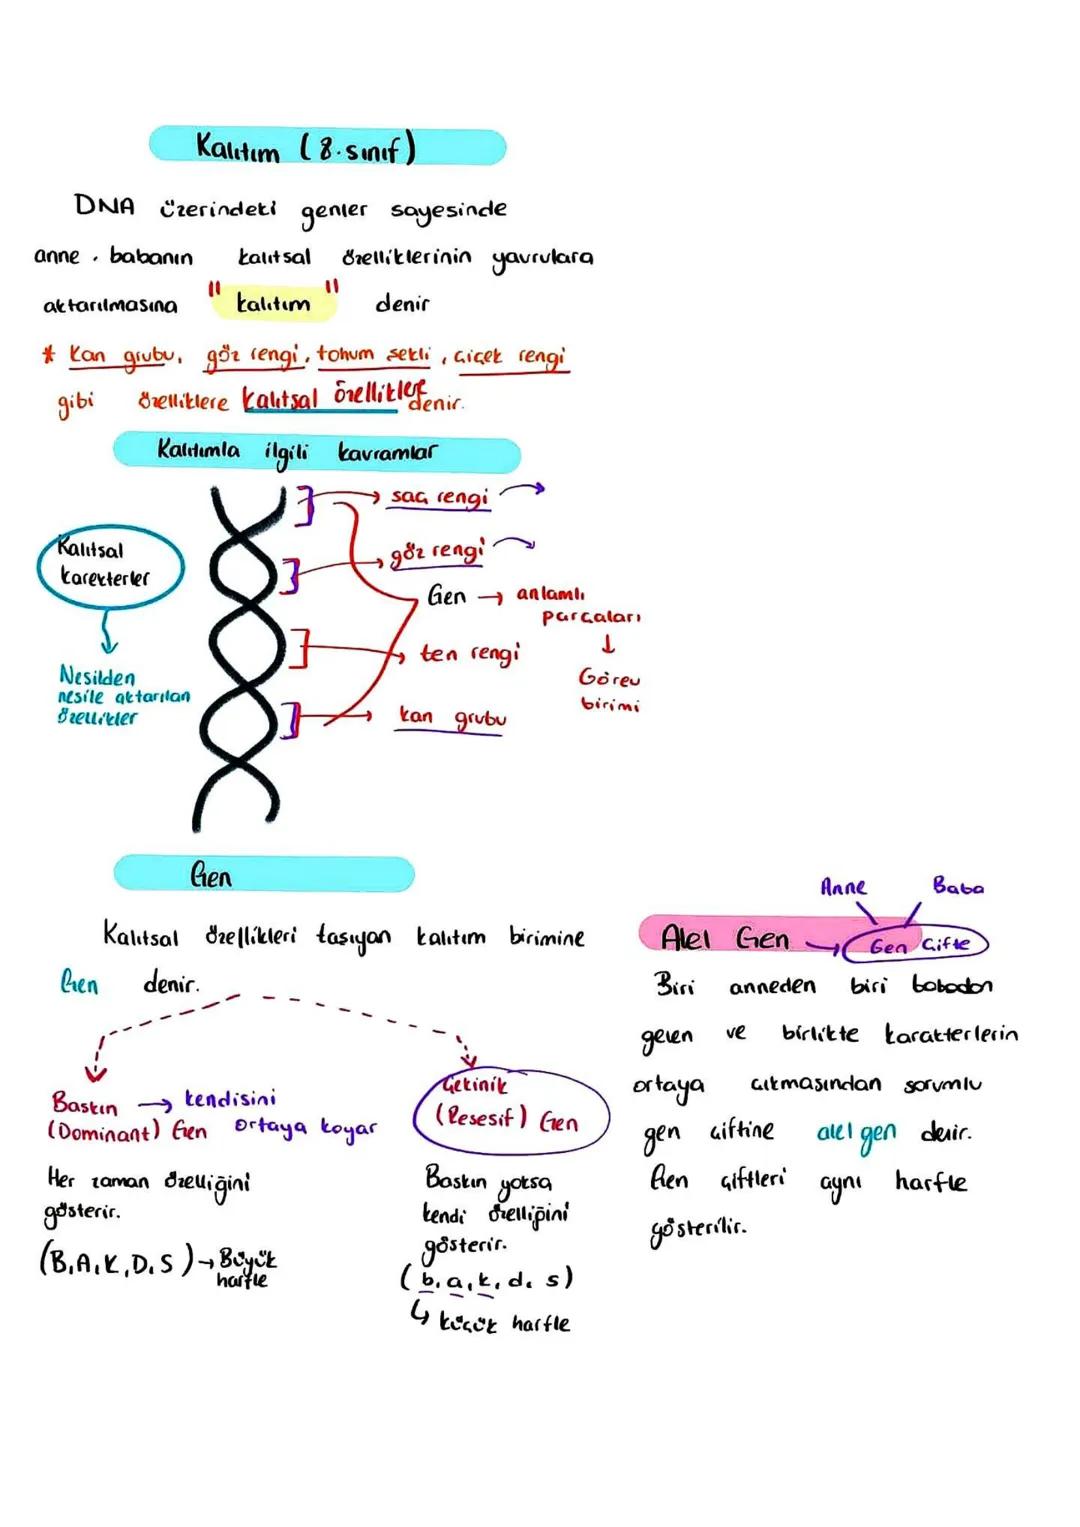 Kalıtım (8.sınıf)
DNA üzerindeki genler sayesinde
anne . babanın kalıtsal özelliklerinin yavrulara
aktarılmasına "kalıtım" denir
* Kan grubu, göz rengi, tohum şekli, çiçek rengi
gibi özelliklere kalıtsal özellikler denir.
Kalıtımla ilgili kavramlar
Kalıtsal
karekterler
Nesilden
nesile aktarılan
özellikler
saç rengi →
göz rengi →
Gen → anlamlı
parçaları
↓
Görev
birimi
ten rengi
kan grubu
Gen
Kalıtsal özellikleri taşıyan kalıtım birimine
Gen denir.
Baskın → kendisini
(Dominant) Gen ortaya koyar
Her zaman özelliğini
gösterir.
(B,A,K,D,S) → Büyük
harfle
Çekinik
(Resesif) Gen
Baskın yoksa
kendi özelliğini
gösterir.
(b,a,k,d,s)
↳ küçük harfle
Anne Baba
Alel Gen → Gen Çifte
Biri anneden biri babadan
gelen ve birlikte karakterlerin
ortaya çıkmasından sorumlu
gen çiftine alel gen denir.
Gen çiftleri aynı harfle
gösterilir.